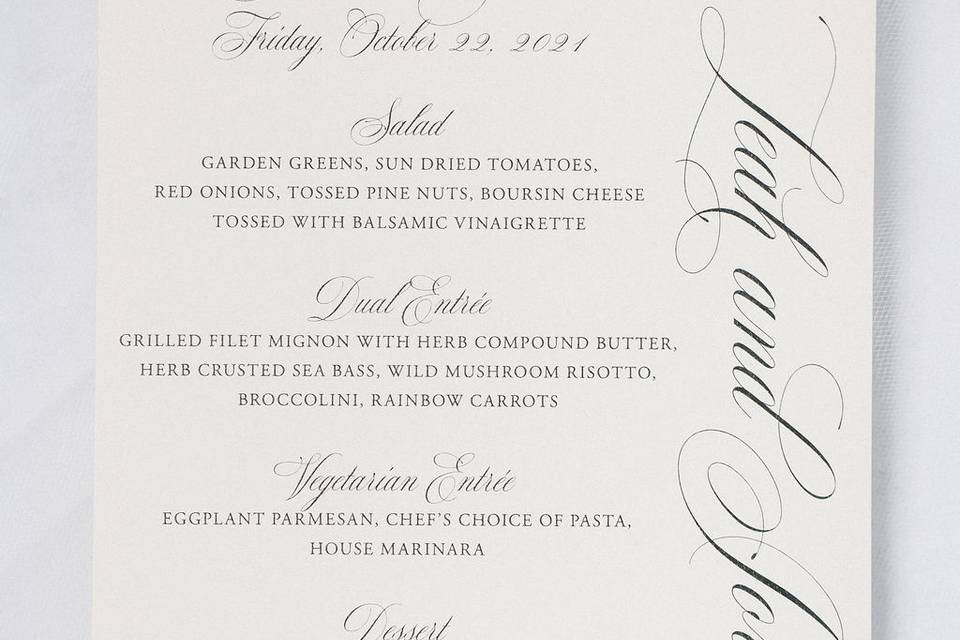 Friday, October 22, 2021
Salad
GARDEN GREENS, SUN DRIED TOMATOES,
RED ONIONS, TOSSED PINE NUTS, BOURSIN CHEESE
TOSSED WITH BALSAMIC VINAIGRETTE
Dual Entrée
GRILLED FILET MIGNON WITH HERB COMPOUND BUTTER,
HERB CRUSTED SEA BASS, WILD MUSHROOM RISOTTO,
BROCCOLINI, RAINBOW CARROTS
Vegetarian Entrée
EGGPLANT PARMESAN, CHEF'S CHOICE OF PASTA,
HOUSE MARINARA
Dessert
Leah and